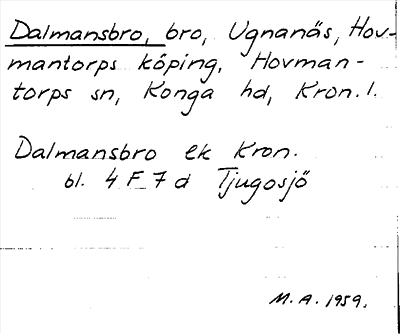 Dalmansbro, bro, Ugnanäs, Hov-
mantorps köping, Hovman-
torps sn, Konga hd, Kron. l.
Dalmansbro ek Kron.
bl. 4 F 7 d Tjugosjö
M. A. 1959.